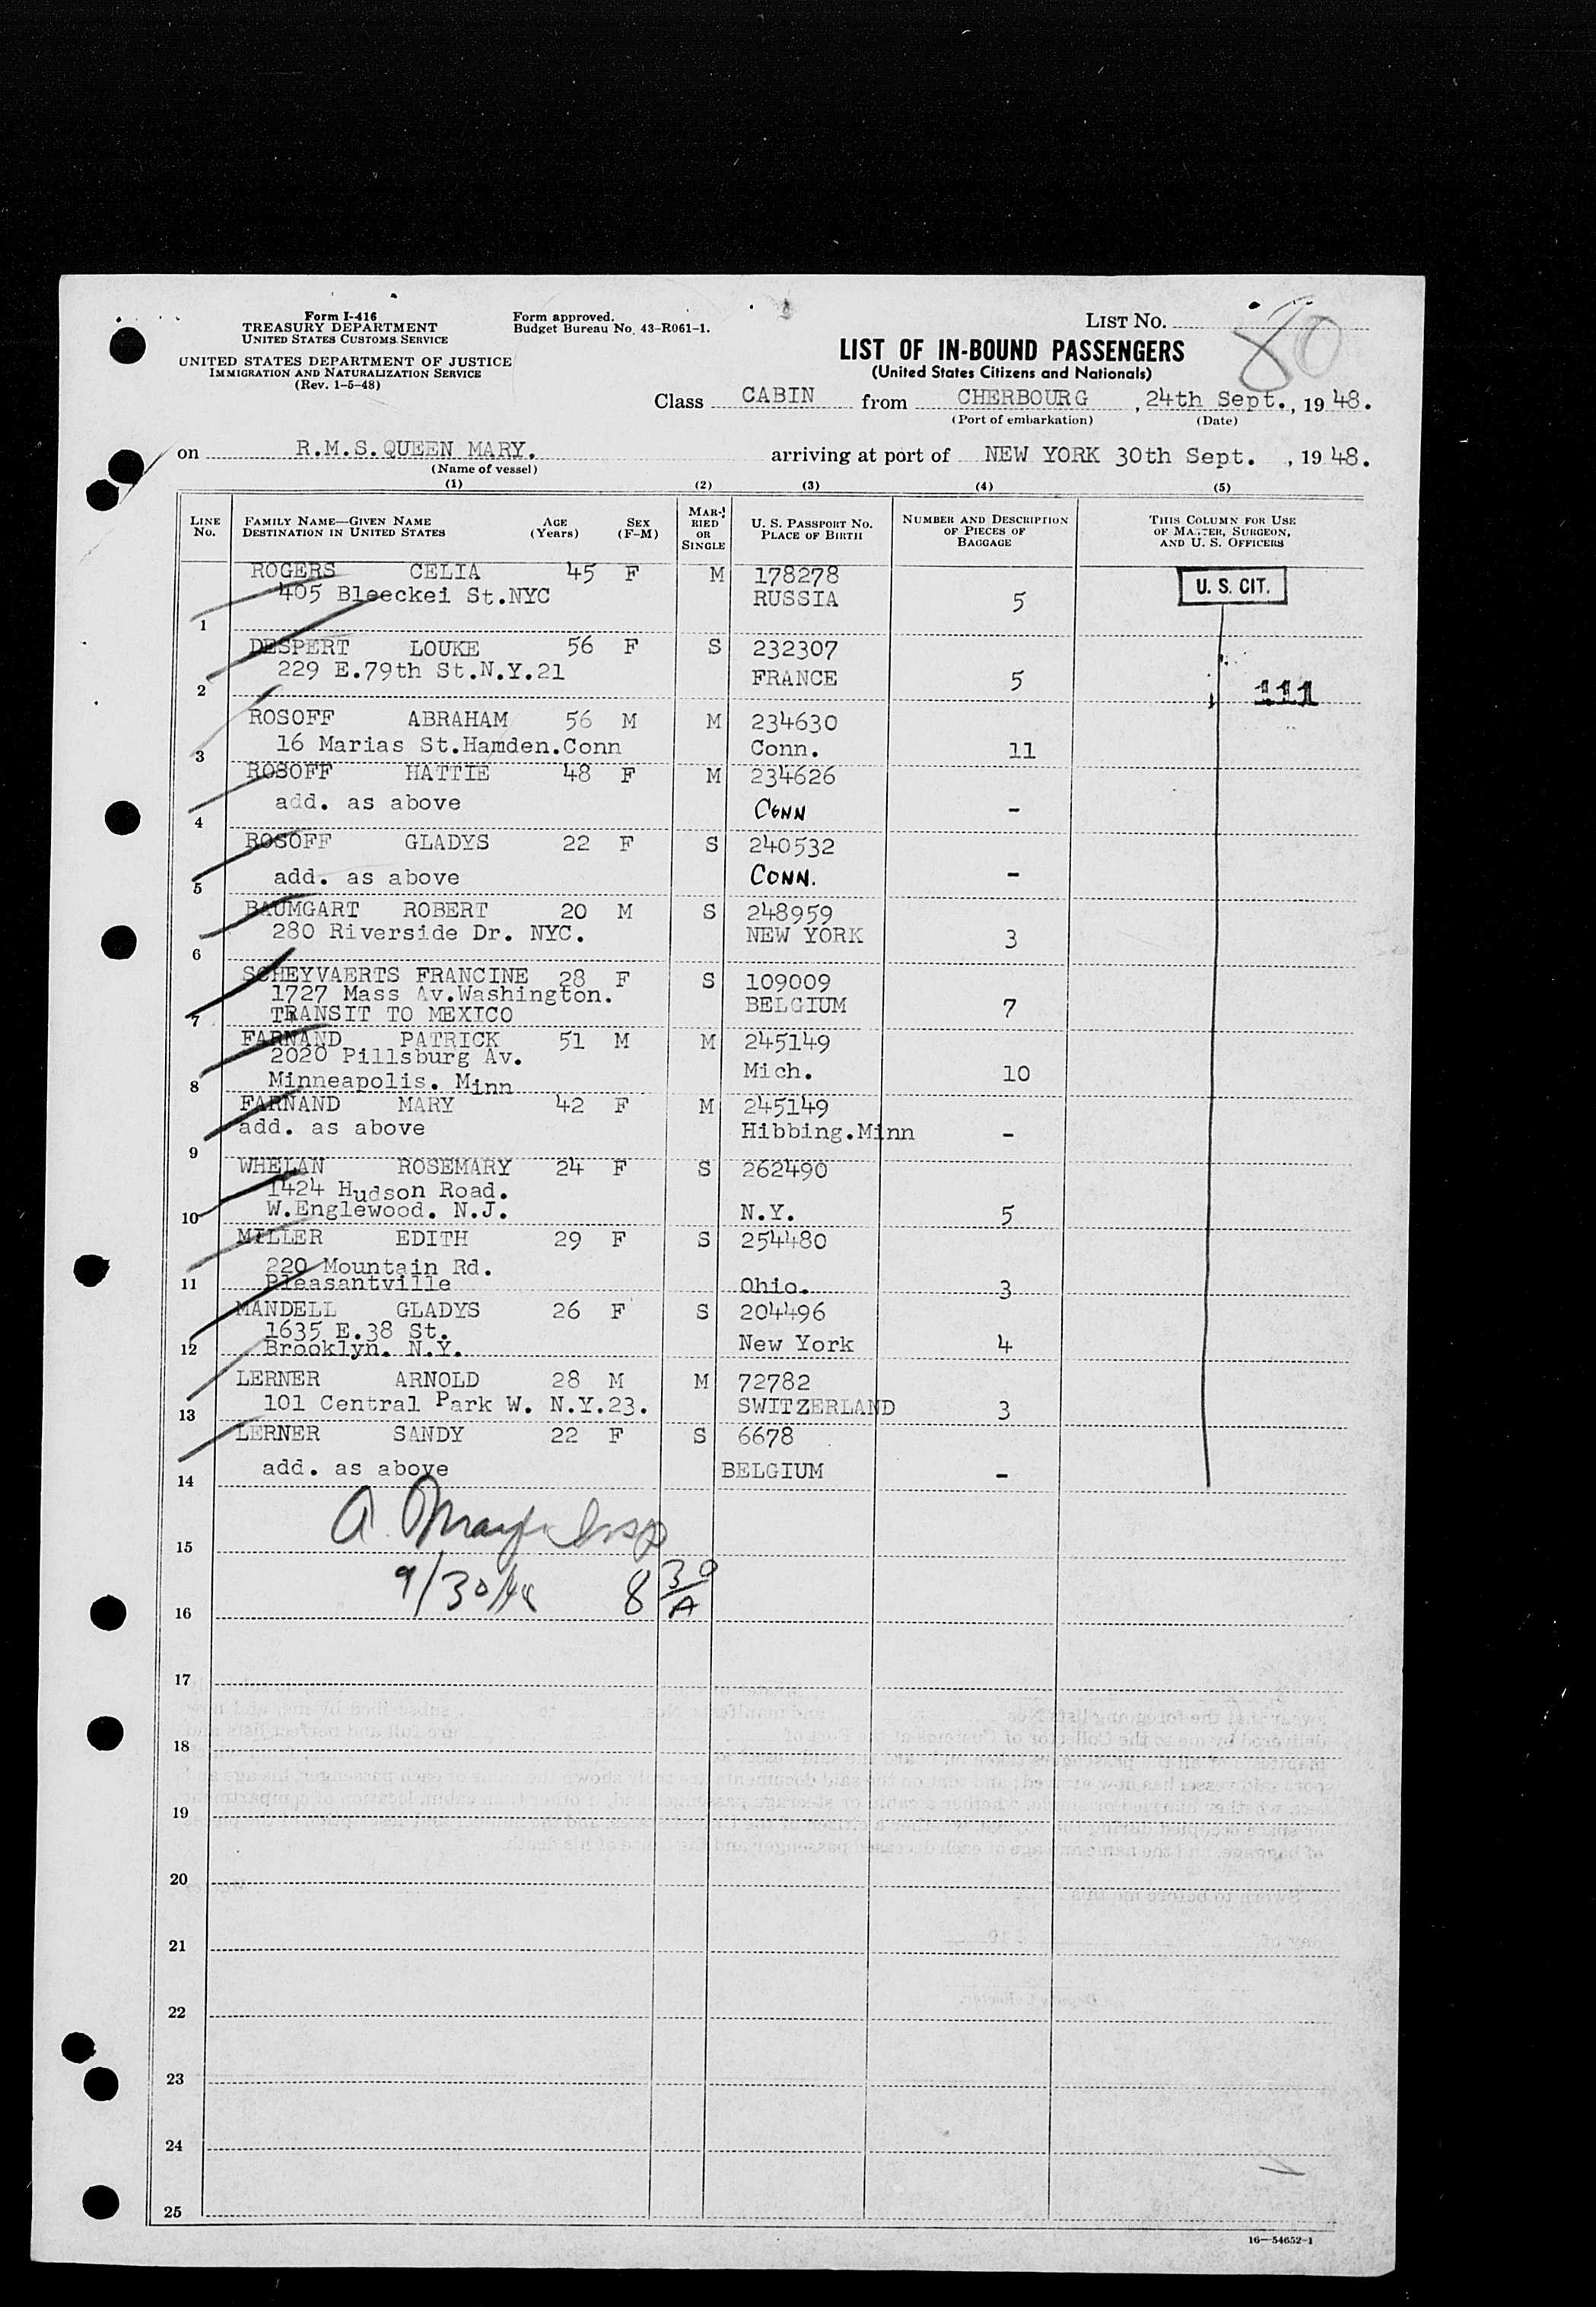 Form I-416
TREASURY DEPARTMENT
UNITED STATES CUSTOMS SERVICE
UNITED STATES DEPARTMENT OF JUSTICE
IMMIGRATION AND NATURALIZATION SERVICE
(Rev. 1-5-48)
Form approved.
Budget Bureau No. 43-R061-1.
LIST NO. 80
LIST OF IN-BOUND PASSENGERS
(United States Citizens and Nationals)
Class CABIN from CHERBOURG, 24th Sept., 1948.
(Port of embarkation) (Date)
on R.M.S.QUEEN MARY. arriving at port of NEW YORK 30th Sept. , 1948.
(Name of vessel)
(1) (2) (3) (4) (5)
LINE NO. FAMILY NAME—GIVEN NAME DESTINATION IN UNITED STATES AGE (Years) SEX (F-M) MARRIED OR SINGLE U. S. PASSPORT NO. PLACE OF BIRTH NUMBER AND DESCRIPTION OF PIECES OF BAGGAGE THIS COLUMN FOR USE OF MASTER, SURGEON, AND U. S. OFFICERS
ROGERS CELIA 45 F M 178278 U. S. CIT.
405 Bleeckei St.NYC RUSSIA 5
1
DESPERT LOUKE 56 F S 232307
229 E.79th St.N.Y.21 FRANCE 5
2 111
ROSOFF ABRAHAM 56 M M 234630
16 Marias St.Hamden.Conn Conn. 11
3
ROSOFF HATTIE 48 F M 234626
add. as above CONN -
4
ROSOFF GLADYS 22 F S 240532
add. as above CONN. -
5
BAUMGART ROBERT 20 M S 248959
280 Riverside Dr. NYC. NEW YORK 3
6
SCHEYVAERTS FRANCINE 28 F S 109009
1727 Mass Av.Washington. BELGIUM 7
7 TRANSIT TO MEXICO
FARNAND PATRICK 51 M M 245149
2020 Pillsburg Av. Mich. 10
8 Minneapolis. Minn
FARNAND MARY 42 F M 245149
add. as above Hibbing.Minn -
9
WHELAN ROSEMARY 24 F S 262490
1424 Hudson Road.
10 W.Englewood. N.J. N.Y. 5
MILLER EDITH 29 F S 254480
220 Mountain Rd.
11 Pleasantville Ohio. 3
MANDELL GLADYS 26 F S 204496
1635 E.38 St.
12 Brooklyn. N.Y. New York 4
LERNER ARNOLD 28 M M 72782
101 Central Park W. N.Y.23. SWITZERLAND 3
13
LERNER SANDY 22 F S 6678
add. as above BELGIUM -
14
A. Insp
15
9/30/48 8 30/A
16
17
18
19
20
21
22
23
24
25
16—54652-1